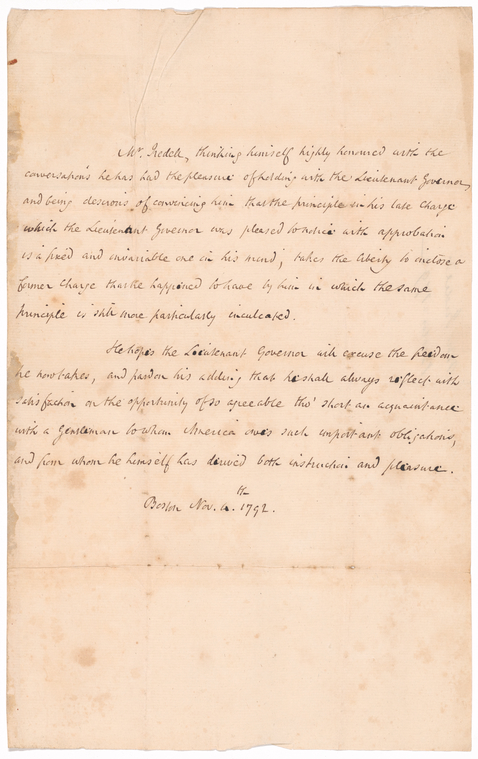 Mr. Iredell, thinking himself highly honoured with the
conversations he has had the pleasure of holding with the Lieutenant Governor,
and being desirous of convincing him that the principle in his late Charge
which the Lieutenant Governor was pleased to notice with approbation
is a fixed and invariable one in his mind, takes the liberty to inclose a
former Charge that he happened to have by him in which the same
principle is still more particularly inculcated.
He hopes the Lieutenant Governor will excuse the freedom
he now takes, and pardon his adding that he shall always reflect with
satisfaction on the opportunity of so agreeable tho' short an acquaintance
with a Gentleman to whom America owes such important obligations,
and from whom he himself has derived both instruction and pleasure.
Boston Nov. 4th. 1792.